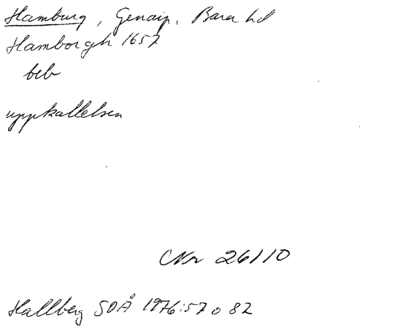 Hamburg, Genarp, Bara hd
Hamborgh 1657
beb
uppkallelsen
CNr 26110
Hallberg SOÅ 1976:57 o 82